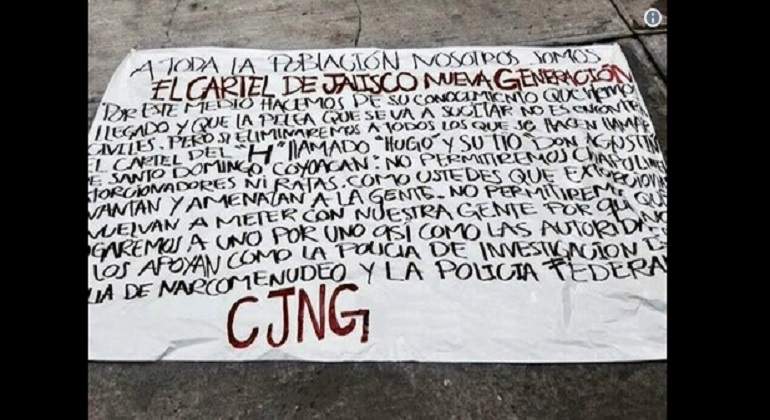 A TODA LA POBLACIÓN NOSOTROS SOMOS
EL CARTEL DE JALISCO NUEVA GENERACIÓN
POR ESTE MEDIO HACEMOS DE SU CONOCIMIENTO QUE HEMO
LLEGADO Y QUE LA PELEA QUE SE VA A SUCITAR NO ES ENCONTR
CIVILES. PERO SI ELIMINAREMOS A TODOS LOS QUE SE HACEN LLAMAR
EL CARTEL DEL "H" LLAMADO "HUGO" Y SU TIO "DON AGUSTIN
E SANTO DOMINGO, COYOACAN: NO PERMITIREMOS CHAPULINE
TORCIONADORES NI RATAS. COMO USTEDES QUE EXTORCION
VANTAN Y AMENAZAN A LA GENTE. NO PERMITIREMO QUE
VUELVAN A METER CON NUESTRA GENTE POR QU NO
OGAREMOS A UNO POR UNO ASÍ COMO LAS AUTORIDADES
LOS APOYAN COMO LA POLICIA DE INVESTIGACION
LIA DE NARCOMENUDEO Y LA POLICIA FEDERAL
CJNG